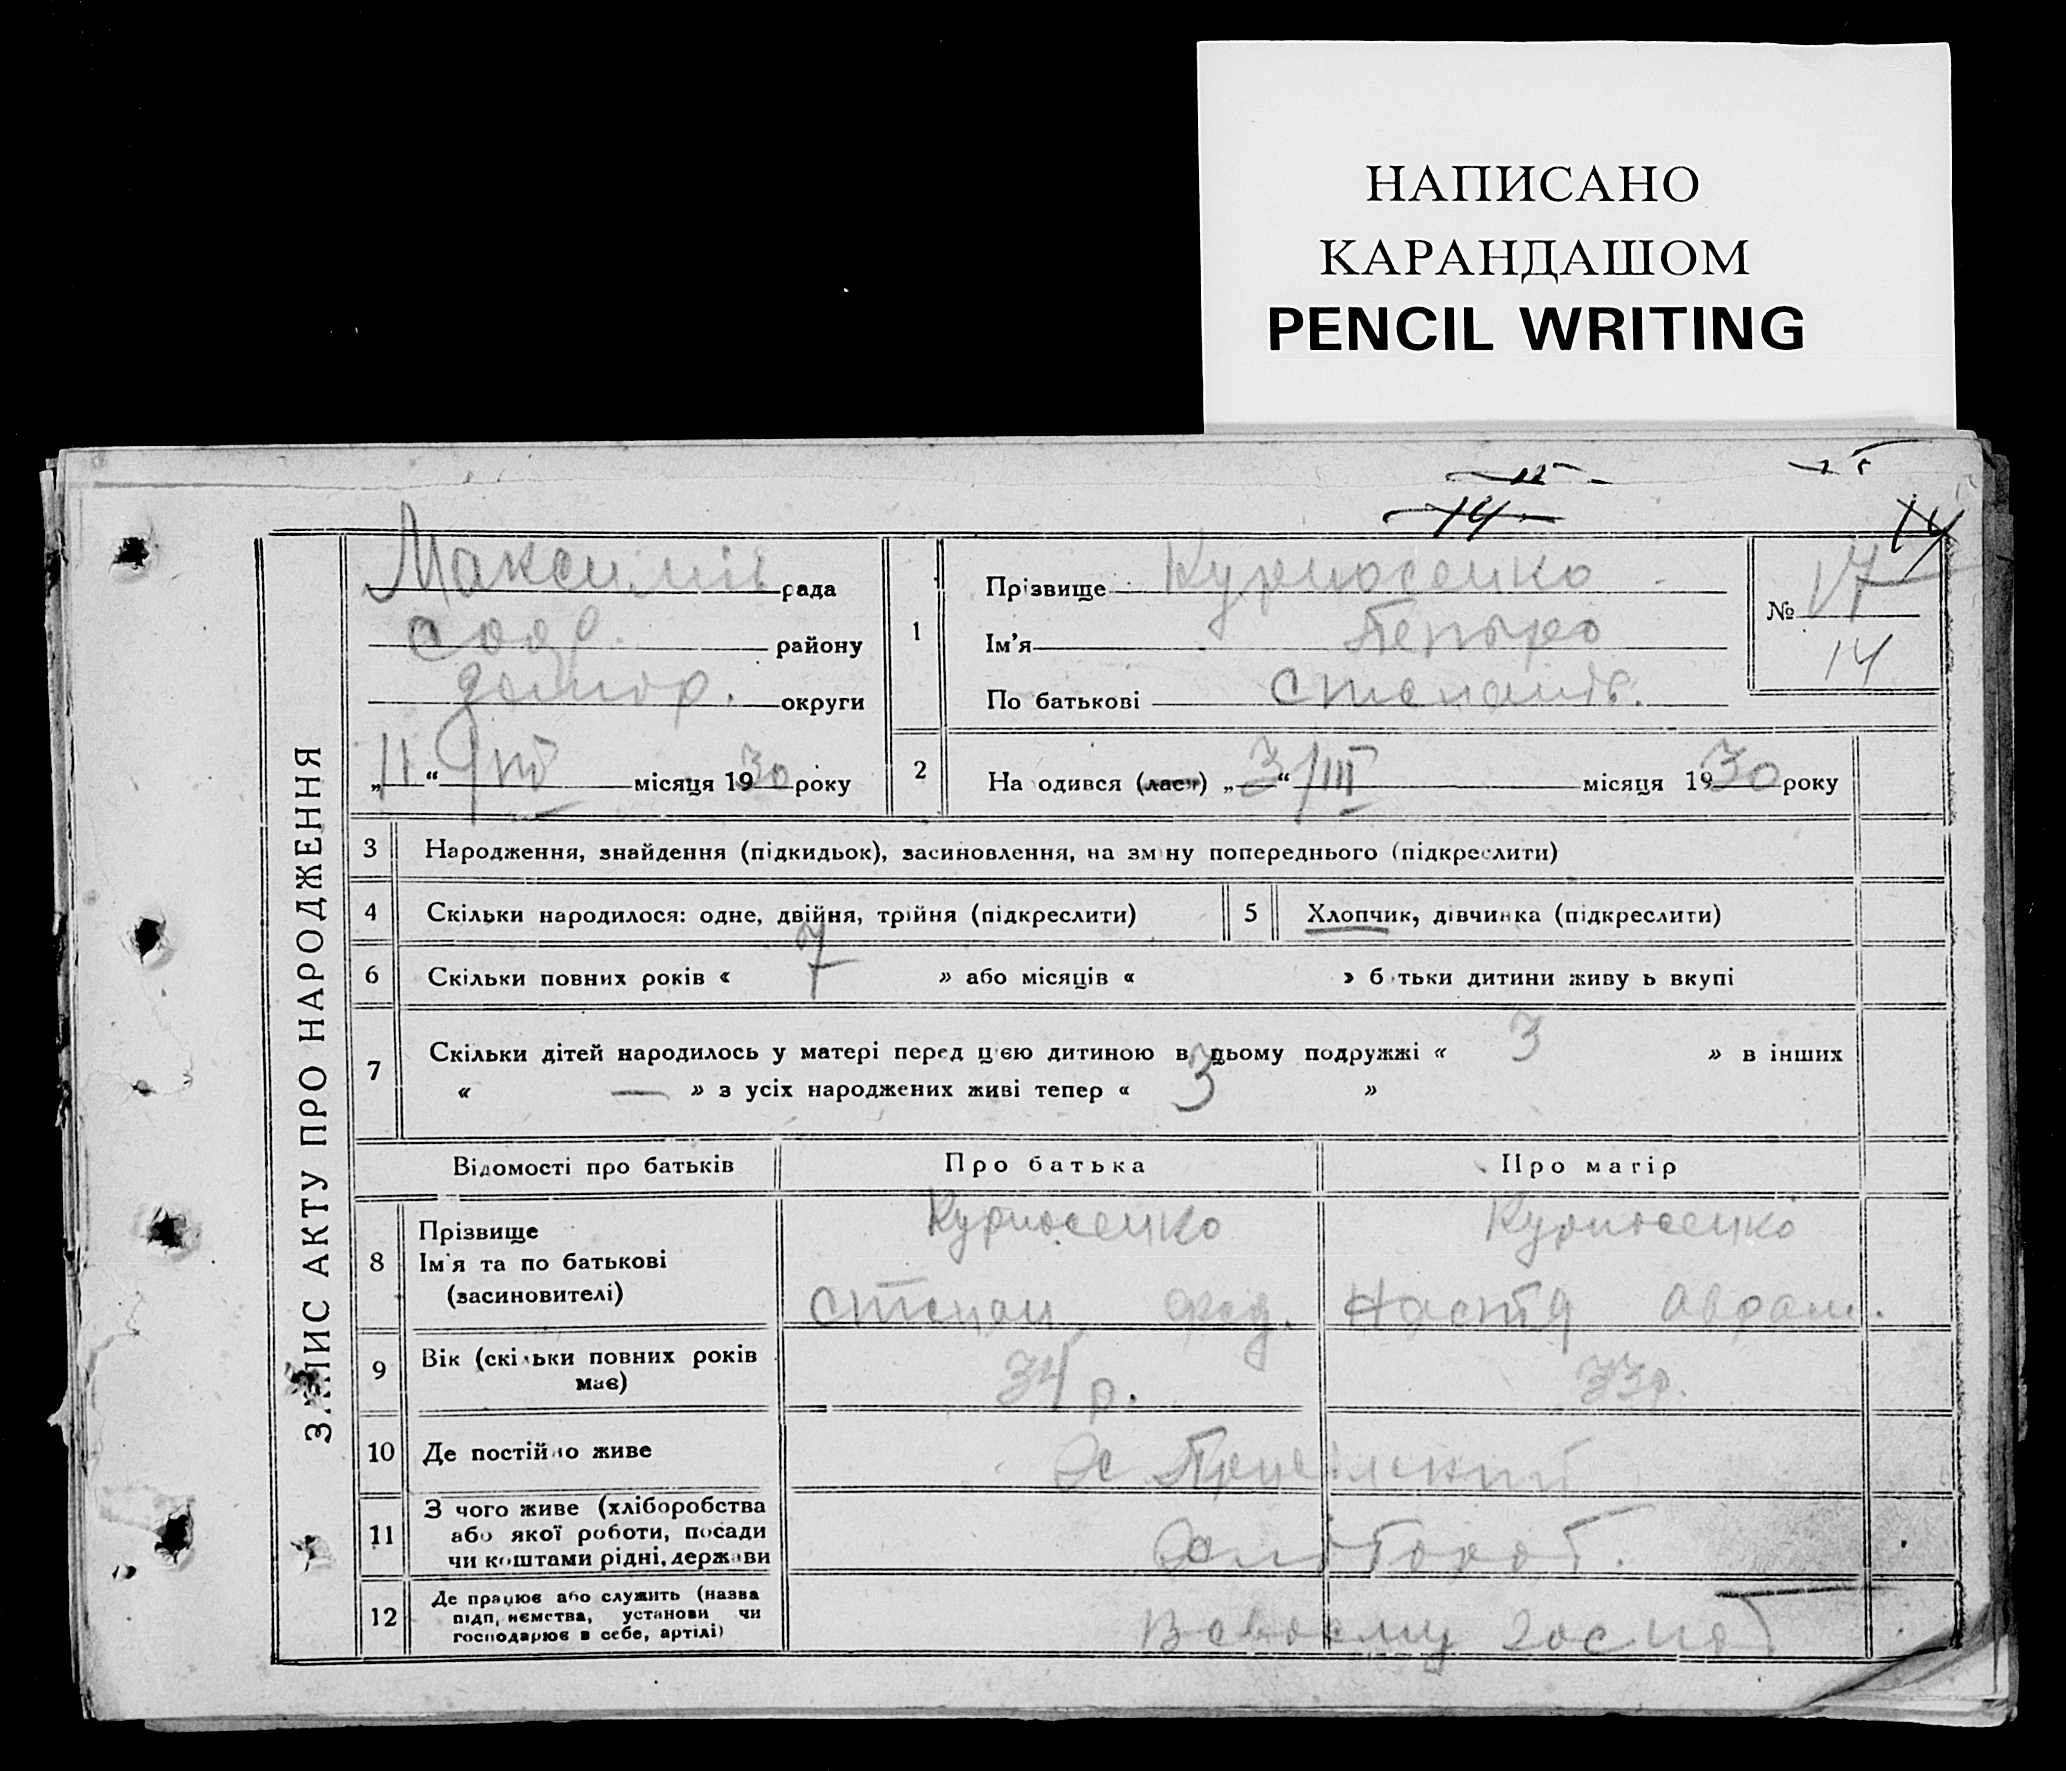 НАПИСАНО
КАРАНДАШОМ
PENCIL WRITING
14
14
ЗАПИС АКТУ ПРО НАРОДЖЕННЯ
Максимів рада
району
округи
„11“ місяця 1930 року
1
Прізвище Курносенко
Ім’я Петро
По батькові Степанів.
№ 17
14
2
Народився (лася) „3“ III місяця 1930 року
3 Народження, знайдення (підкидьок), засиновлення, на зміну попереднього (підкреслити)
4 Скільки народилося: одне, двійня, трійня (підкреслити)
5 Хлопчик, дівчинка (підкреслити)
6 Скільки повних років « 7 » або місяців « » батьки дитини живуть вкупі
7 Скільки дітей народилось у матері перед цією дитиною в цьому подружжі « 3 » в інших
« — » з усіх народжених живі тепер « 3 »
Відомості про батьків Про батька Про матір
8 Прізвище Курносенко Курносенко
Ім’я та по батькові
(засиновителі) Степан Фед. Настя Аврам.
9 Вік (скільки повних років
має) 34 р. 33 р.
10 Де постійно живе
11 З чого живе (хліборобства
або якої роботи, посади
чи коштами рідні, держави Хлібороб.
12 Де працює або служить (назва
підприємства, установи чи
господарює в себе, артілі) В своему госп